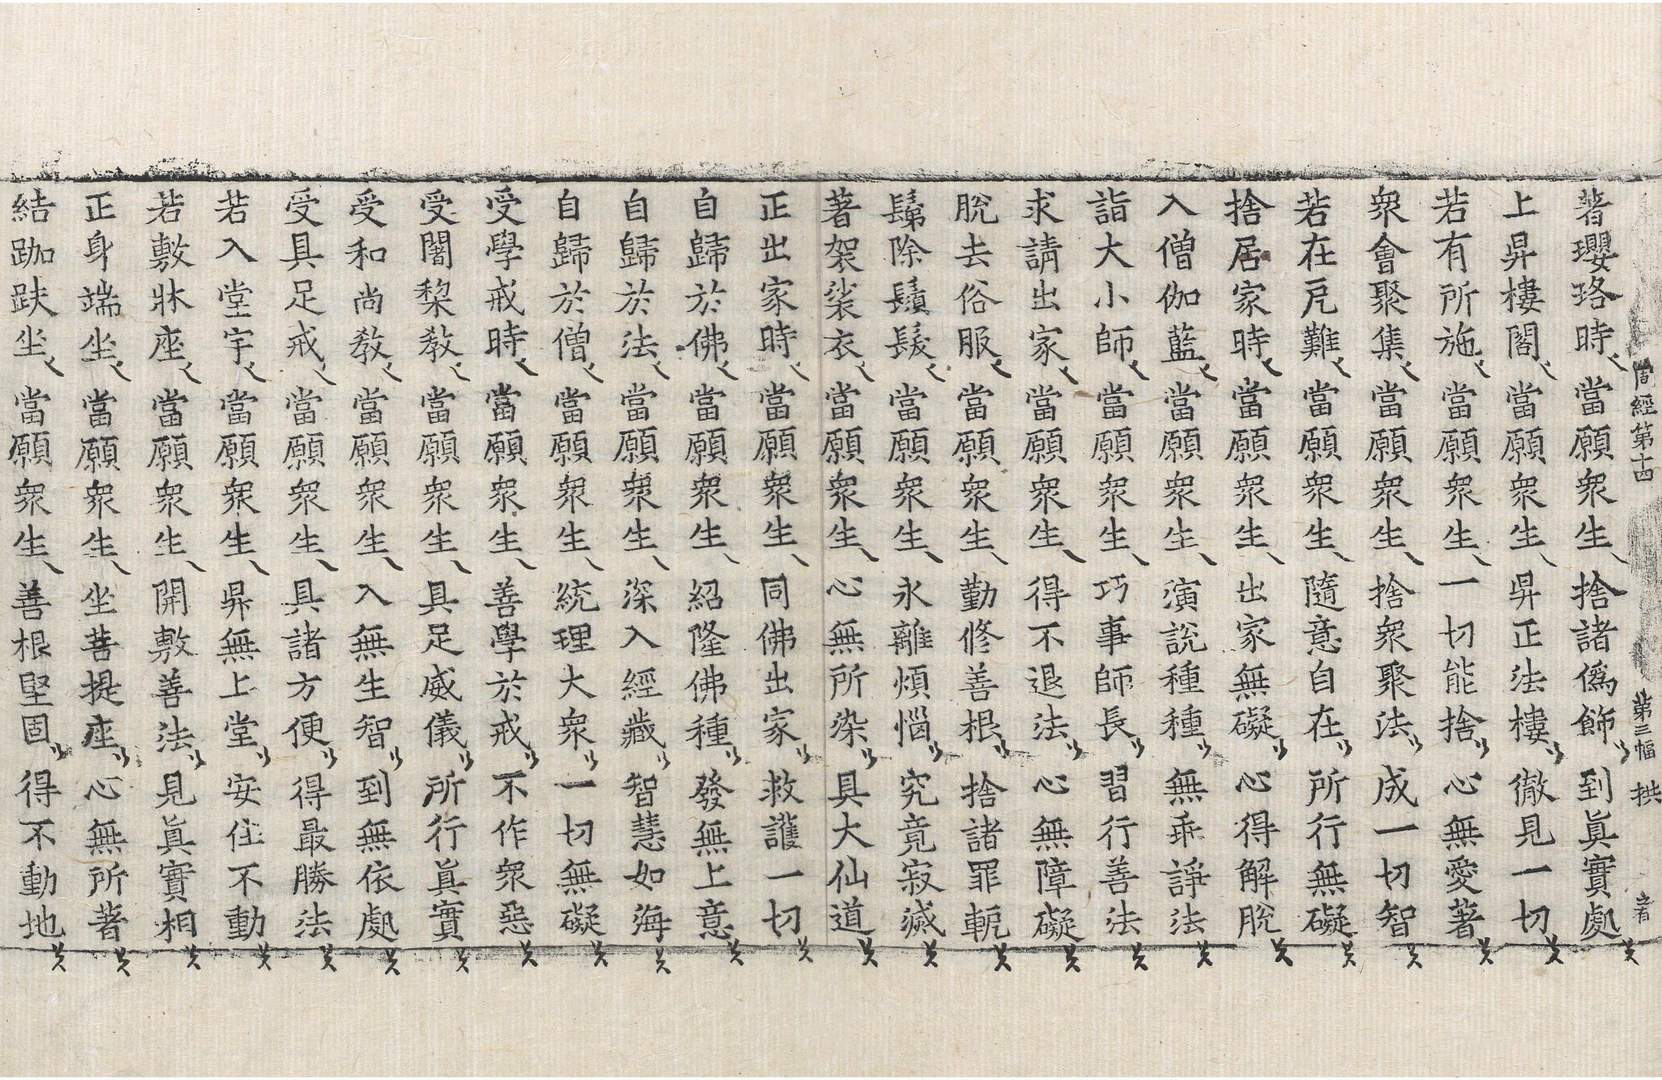 周經第十四 第三幅 拱
著瓔珞時 當願衆生 捨諸僞飾 到眞實處
上昇樓閣 當願衆生 昇正法樓 徹見一切
若有所施 當願衆生 一切能捨 心無愛著
衆會聚集 當願衆生 捨衆聚法 成一切智
若在厄難 當願衆生 隨意自在 所行無礙
捨居家時 當願衆生 出家無礙 心得解脫
入僧伽藍 當願衆生 演說種種 無乖諍法
詣大小師 當願衆生 巧事師長 習行善法
求請出家 當願衆生 得不退法 心無障礙
脫去俗服 當願衆生 勤修善根 捨諸罪軛
鬀除鬚髮 當願衆生 永離煩惱 究竟寂滅
著袈裟衣 當願衆生 心無所染 具大仙道
正出家時 當願衆生 同佛出家 救護一切
自歸於佛 當願衆生 紹隆佛種 發無上意
自歸於法 當願衆生 深入經藏 智慧如海
自歸於僧 當願衆生 統理大衆 一切無礙
受學戒時 當願衆生 善學於戒 不作衆惡
受闍梨敎 當願衆生 具足威儀 所行眞實
受和尚敎 當願衆生 入無生智 到無依處
受具足戒 當願衆生 具諸方便 得最勝法
若入堂宇 當願衆生 昇無上堂 安住不動
若敷牀座 當願衆生 開敷善法 見眞實相
正身端坐 當願衆生 坐菩提座 心無所著
結跏趺坐 當願衆生 善根堅固 得不動地